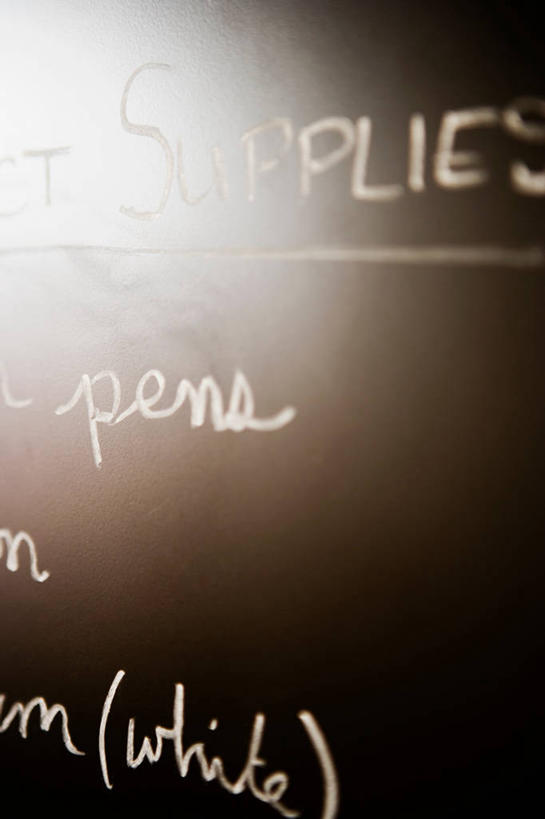 CT SUPPLIES
pens
(white)